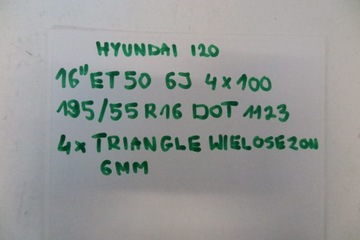 HYUNDAI I20
16" ET50 6J 4x100
195/55 R16 DOT 1123
4x TRIANGLE WIELOSEZON
6MM